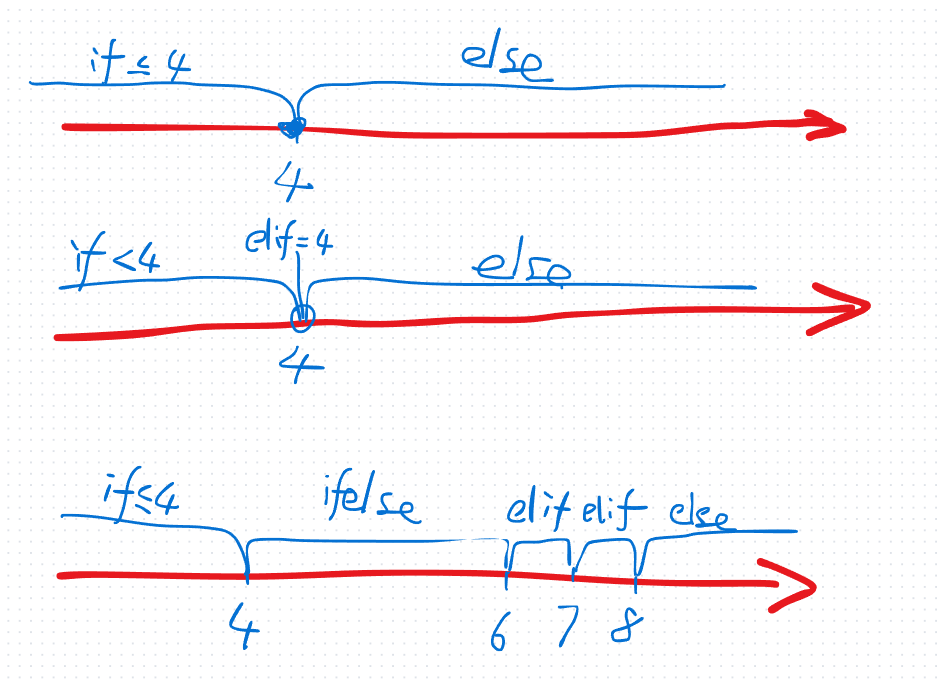 if ≤ 4 else
4
elif = 4
if < 4 else
4
if ≤ 4 ifelse elif elif else
4 6 7 8